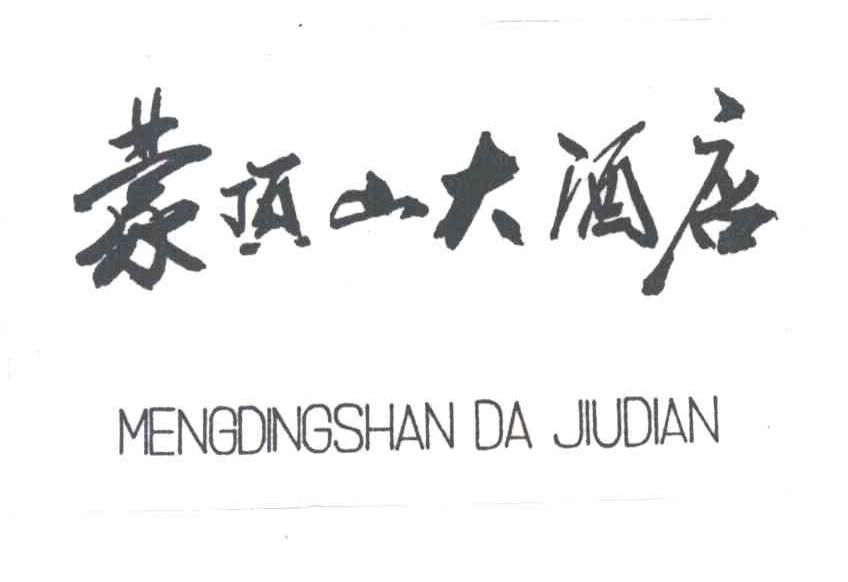 蒙顶山大酒店
MENGDINGSHAN DA JIUDIAN